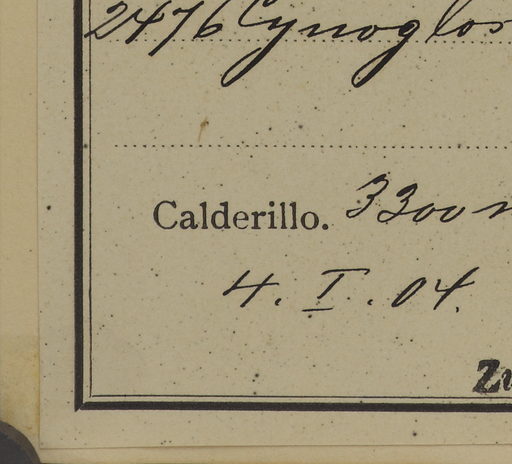 2476 Cynoglos
Calderillo. 3300 m
4. I. 04.
Zu